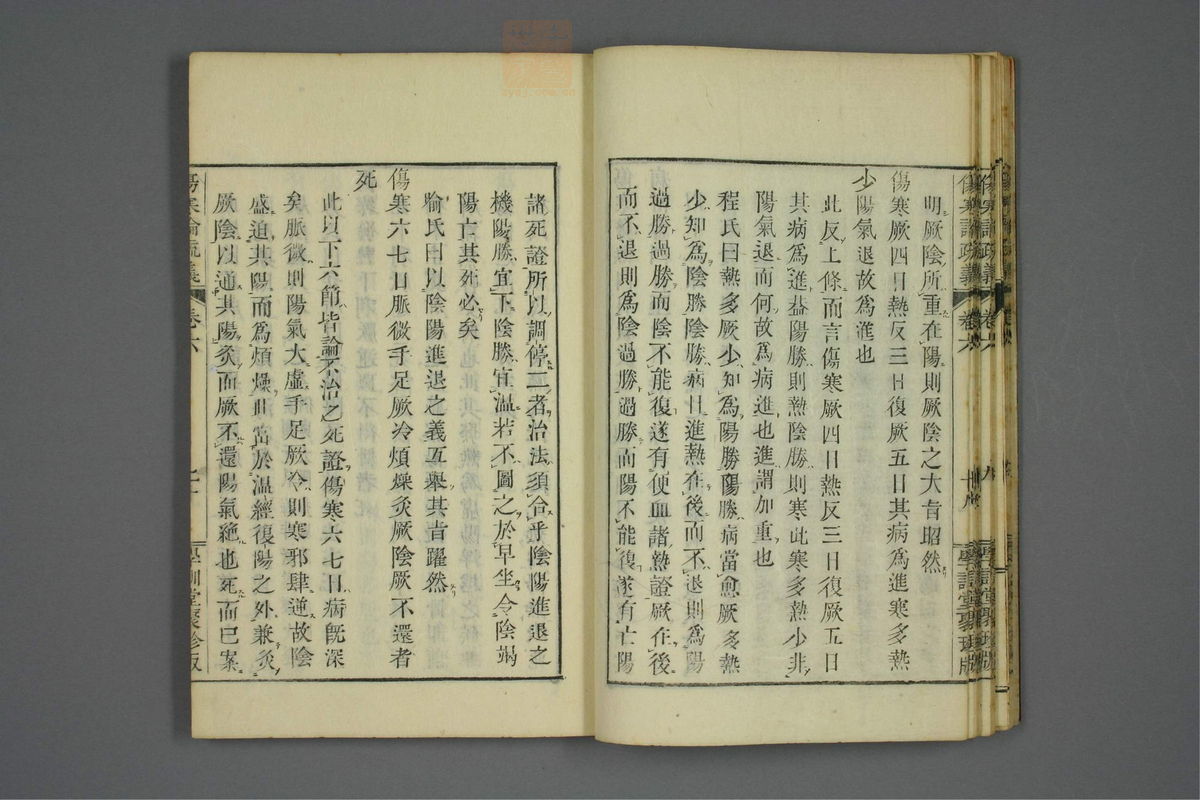 明厥陰所重在陽則厥陰之大旨昭然
傷寒厥四日熱反三日復厥五日其病爲進寒多熱
少陽氣退故爲進也
此反上條而言傷寒厥四日熱反三日復厥五日
其病爲進益陽勝則熱陰勝則寒此寒多熱少非
陽氣退而何故爲病進也進謂加重也
程氏曰熱多厥少知爲陽勝陽勝病當愈厥多熱
少知爲陰勝陰勝病日進熱在後而不退則爲陽
過勝過勝而陰不能復遂有便血諸熱證厥在後
而不退則爲陰過勝過勝而陽不能復遂有亡陽
諸死證所以調停二者治法須合乎陰陽進退之
機陽勝宜下陰勝宜溫若不圖之於早坐令陰竭
陽亡其死必矣
喻氏曰以陰陽進退之義互舉其旨躍然
傷寒六七日脈微手足厥冷煩燥灸厥陰厥不還者
死
此以下六節皆論不治之死證傷寒六七日病旣深
矣脈微則陽氣大虛手足厥冷則寒邪肆逆故陰
盛迫其陽而爲煩燥此當於溫經復陽之外兼灸
厥陰以通其陽灸而厥不還陽氣絶也死而已案
傷寒論疏義
卷六
學訓堂聚珍版